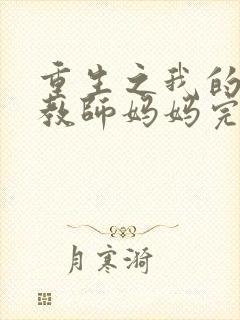 重生之我的
教师妈妈完
月寒漪